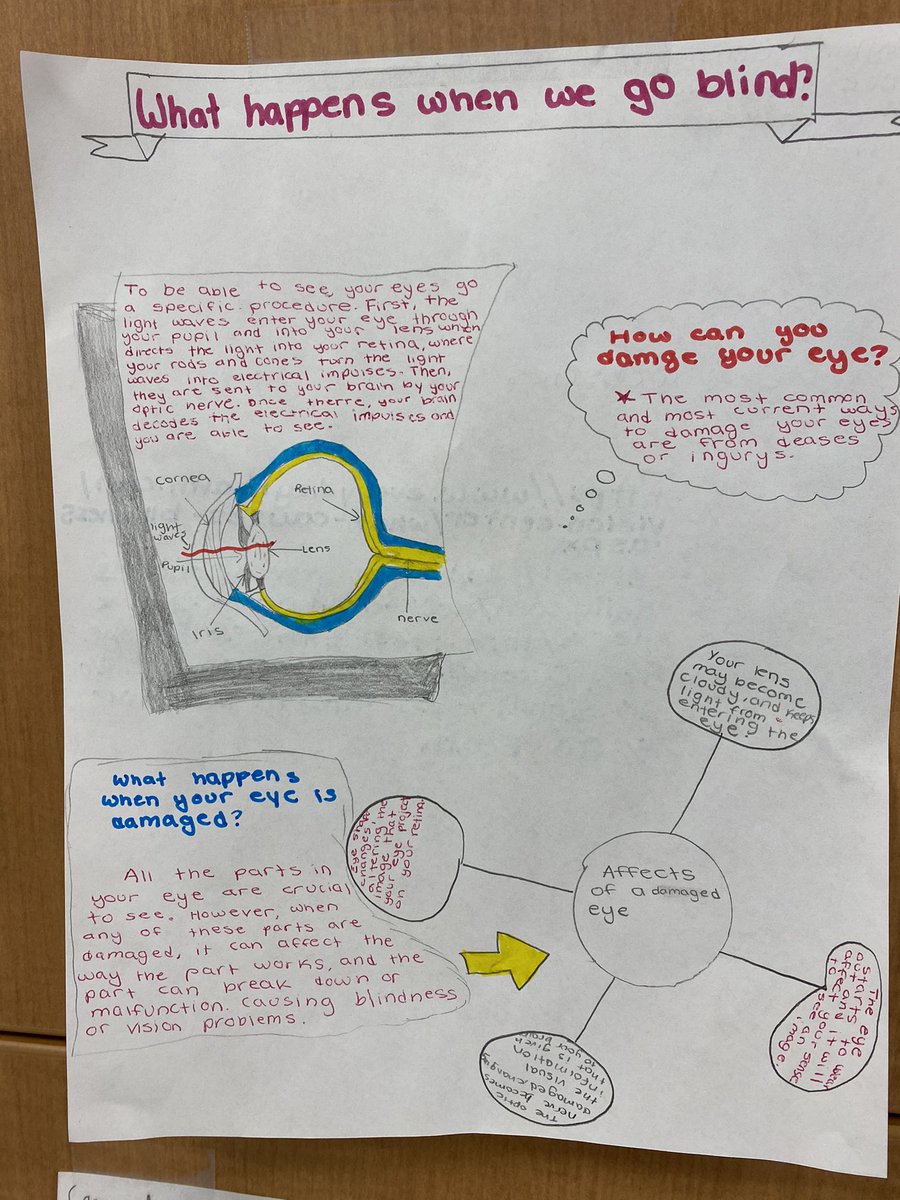 What happens when we go blind?
To be able to see, your eyes go
a specific procedure. First, the
light waves enter your eye through
your pupil and into your lens which
directs the light into your retina, where
your rods and cones turn the light
waves into electrical impulses. Then,
they are sent to your brain by your
optic nerve. Once therre, your brain
decodes the electrical impulses and
you are able to see.
Cornea
Retina
light
waves
Lens
Pupil
Iris
nerve
How can you
damge your eye?
* The most common
and most current ways
to damage your eyes
are from deases
or ingurys.
Your lens
may become
cloudy, and keeps
light from
entering the
eye.
What happens
when your eye is
damaged?
All the parts in
your eye are crucial
to see. However, when
any of these parts are
damaged, it can affect the
way the part works, and the
part can break down or
malfunction. causing blindness
or vision problems.
Eye shape
changes,
altering the
image that
your eye project
on your retina.
Affects
of a damaged
eye
The eye
starts to wear
out and it will
affect your sense
to see an
image.
The optic
nerve becomes
damaged, changing
the visual
information
that is given
to your brain